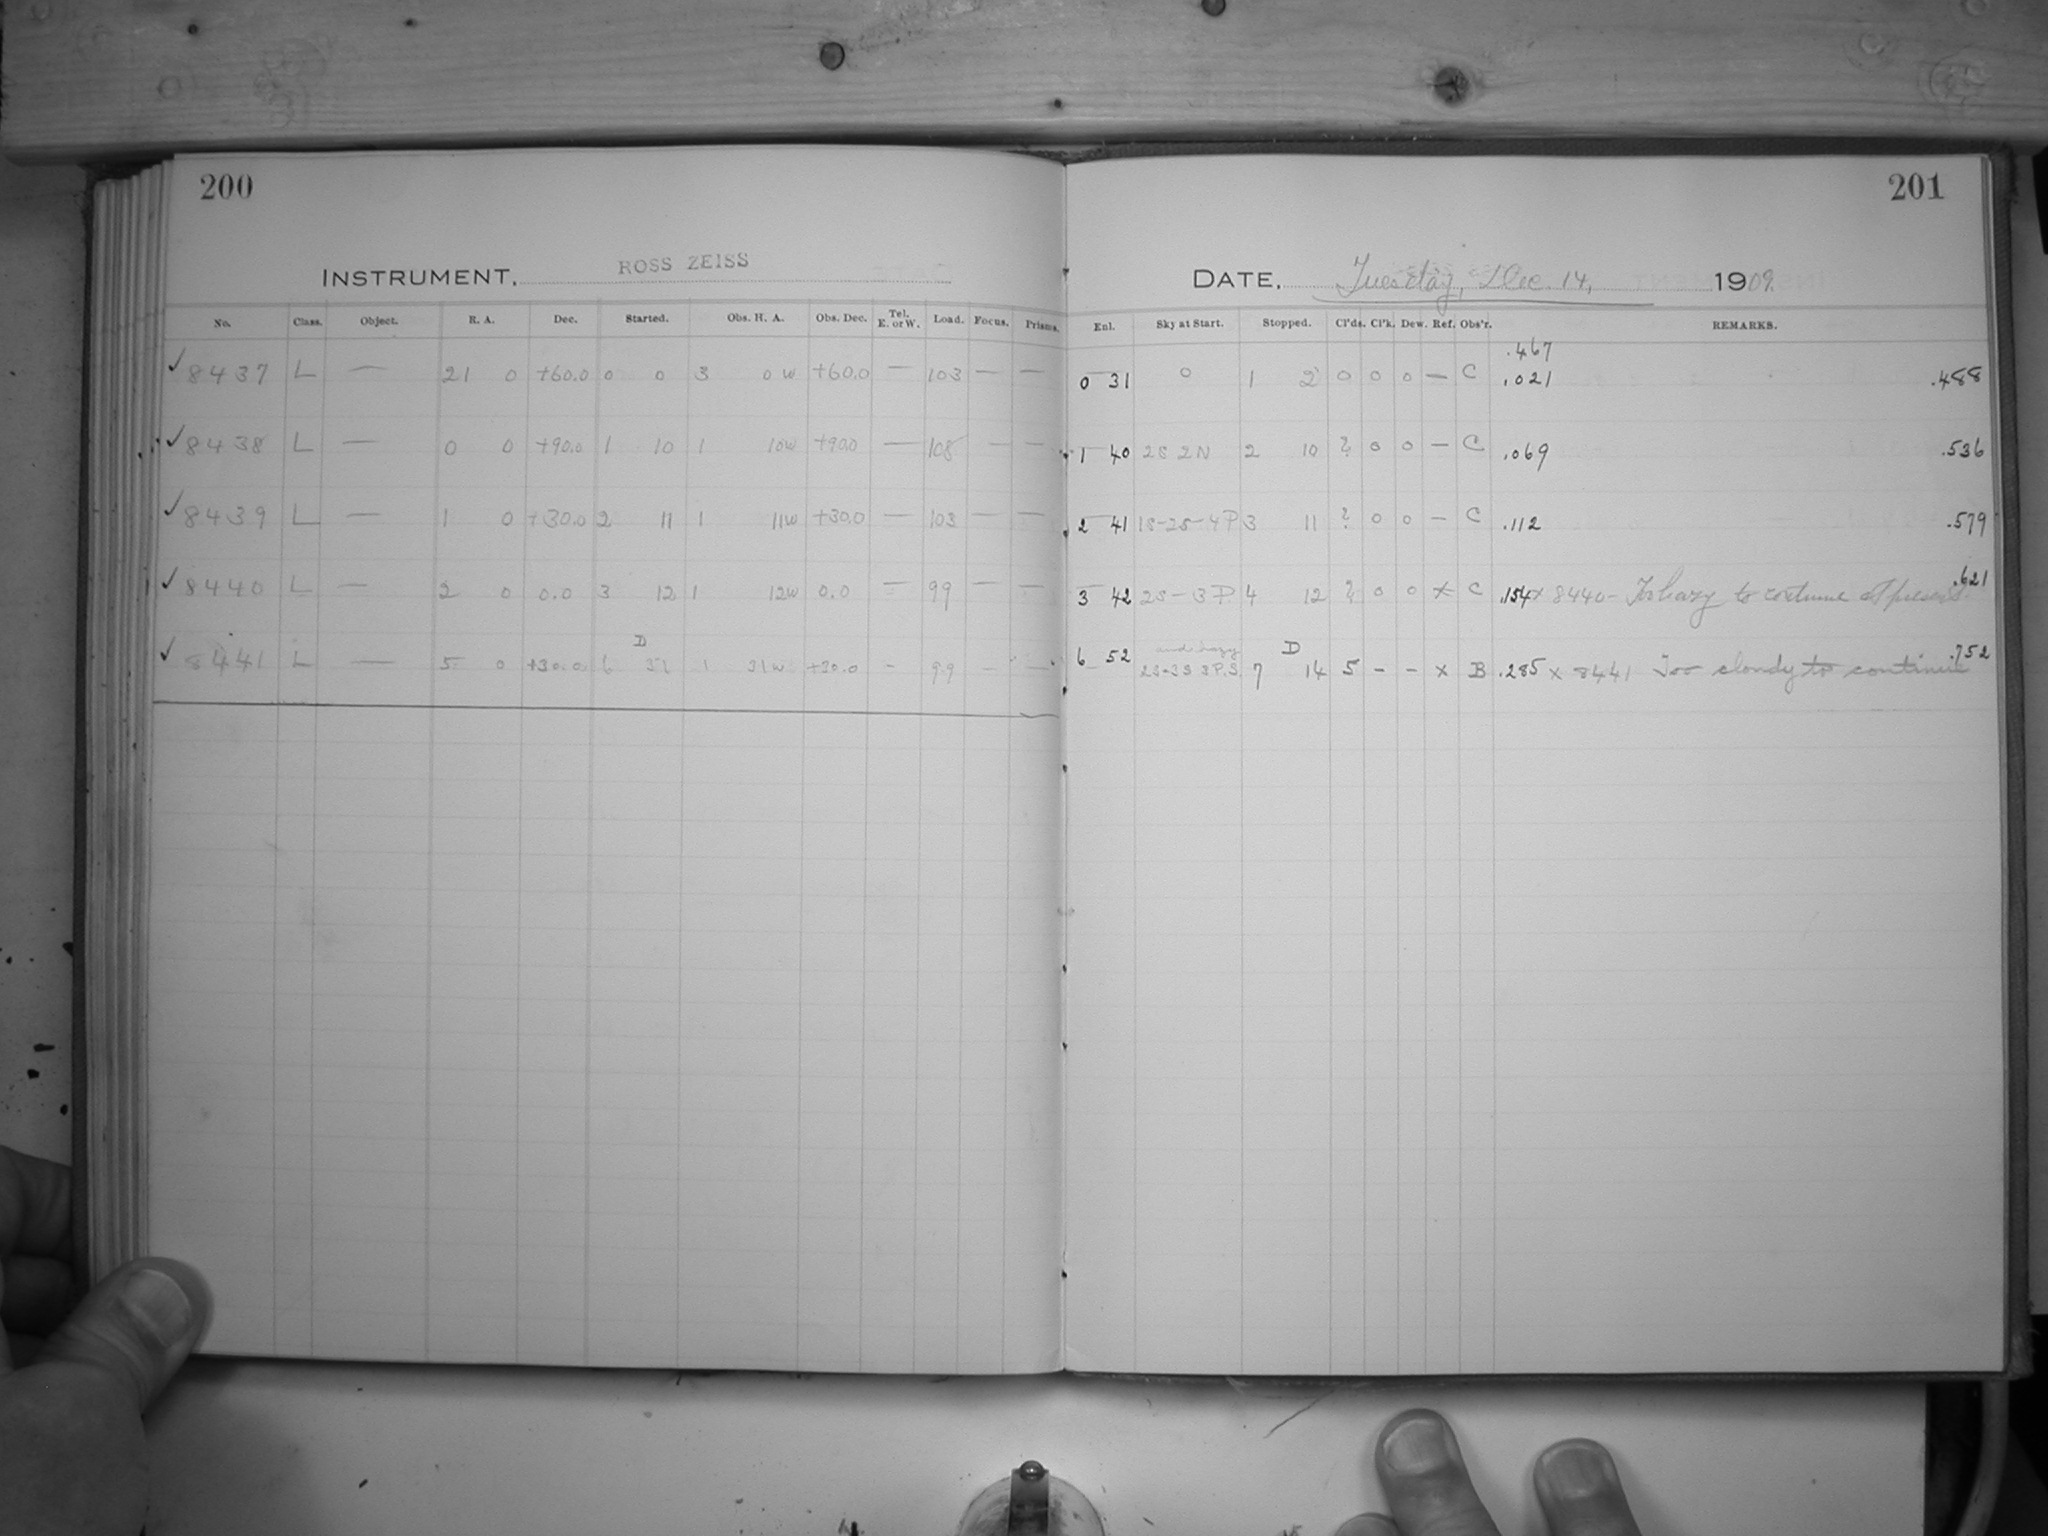 200
INSTRUMENT, ROSS ZEISS
No. Class. Object. R. A. Dec. Started. Obs. H. A. Obs. Dec. Tel. E. or W. Load. Focus. Prisms.
✓ 8437 L — 21 0 +60.0 0 0 3 0 w +60.0 — 103 — —
✓ 8438 L — 0 0 +90.0 1 10 1 10w +90.0 — 108 — —
✓ 8439 L — 1 0 +30.0 2 11 1 11w +30.0 — 103 — —
✓ 8440 L — 2 0 0.0 3 12 1 12w 0.0 — 99 — —
D
✓ 8441 L — 5 0 +30.0 6 31 1 31w +30.0 - 99 - —
201
DATE, Tuesday, Dec. 14, 1909.
Enl. Sky at Start. Stopped. Cl'ds. Cl'k. Dew. Ref. Obs'r. REMARKS.
.467
0 31 0 1 2 0 0 0 — C .021 .488
1 40 2S 2N 2 10 ? 0 0 — C .069 .536
2 41 1S-2S-4P 3 11 ? 0 0 — C .112 .579
.621
3 42 2S-3P. 4 12 ? 0 0 x C .154 x 8440- Too hazy to continue at present.
and hazy D .752
6 52 2S-3S 3P.S. 7 14 5 - - x B .285 x 8441 Too cloudy to continue